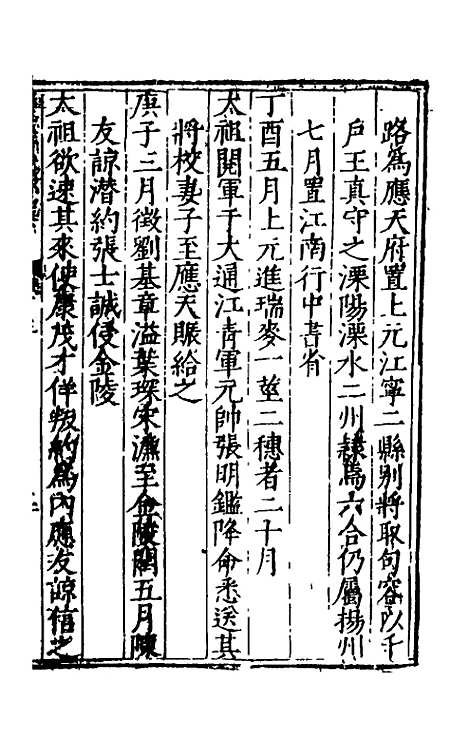 路為應天府置上元江寧二縣別將取句容以千
戶王真守之溧陽溧水二州隸焉六合仍屬揚州
七月置江南行中書省
丁酉五月上元進瑞麥一莖二穗者二十月
太祖閱軍于大通江青軍元帥張明鑑降命悉送其
將校妻子至應天賑給之
庚子三月徵劉基章溢葉琛宋濂至金陵閏五月陳
友諒潛約張士誠侵金陵
太祖欲速其來使康茂才佯叛約為內應友諒信之